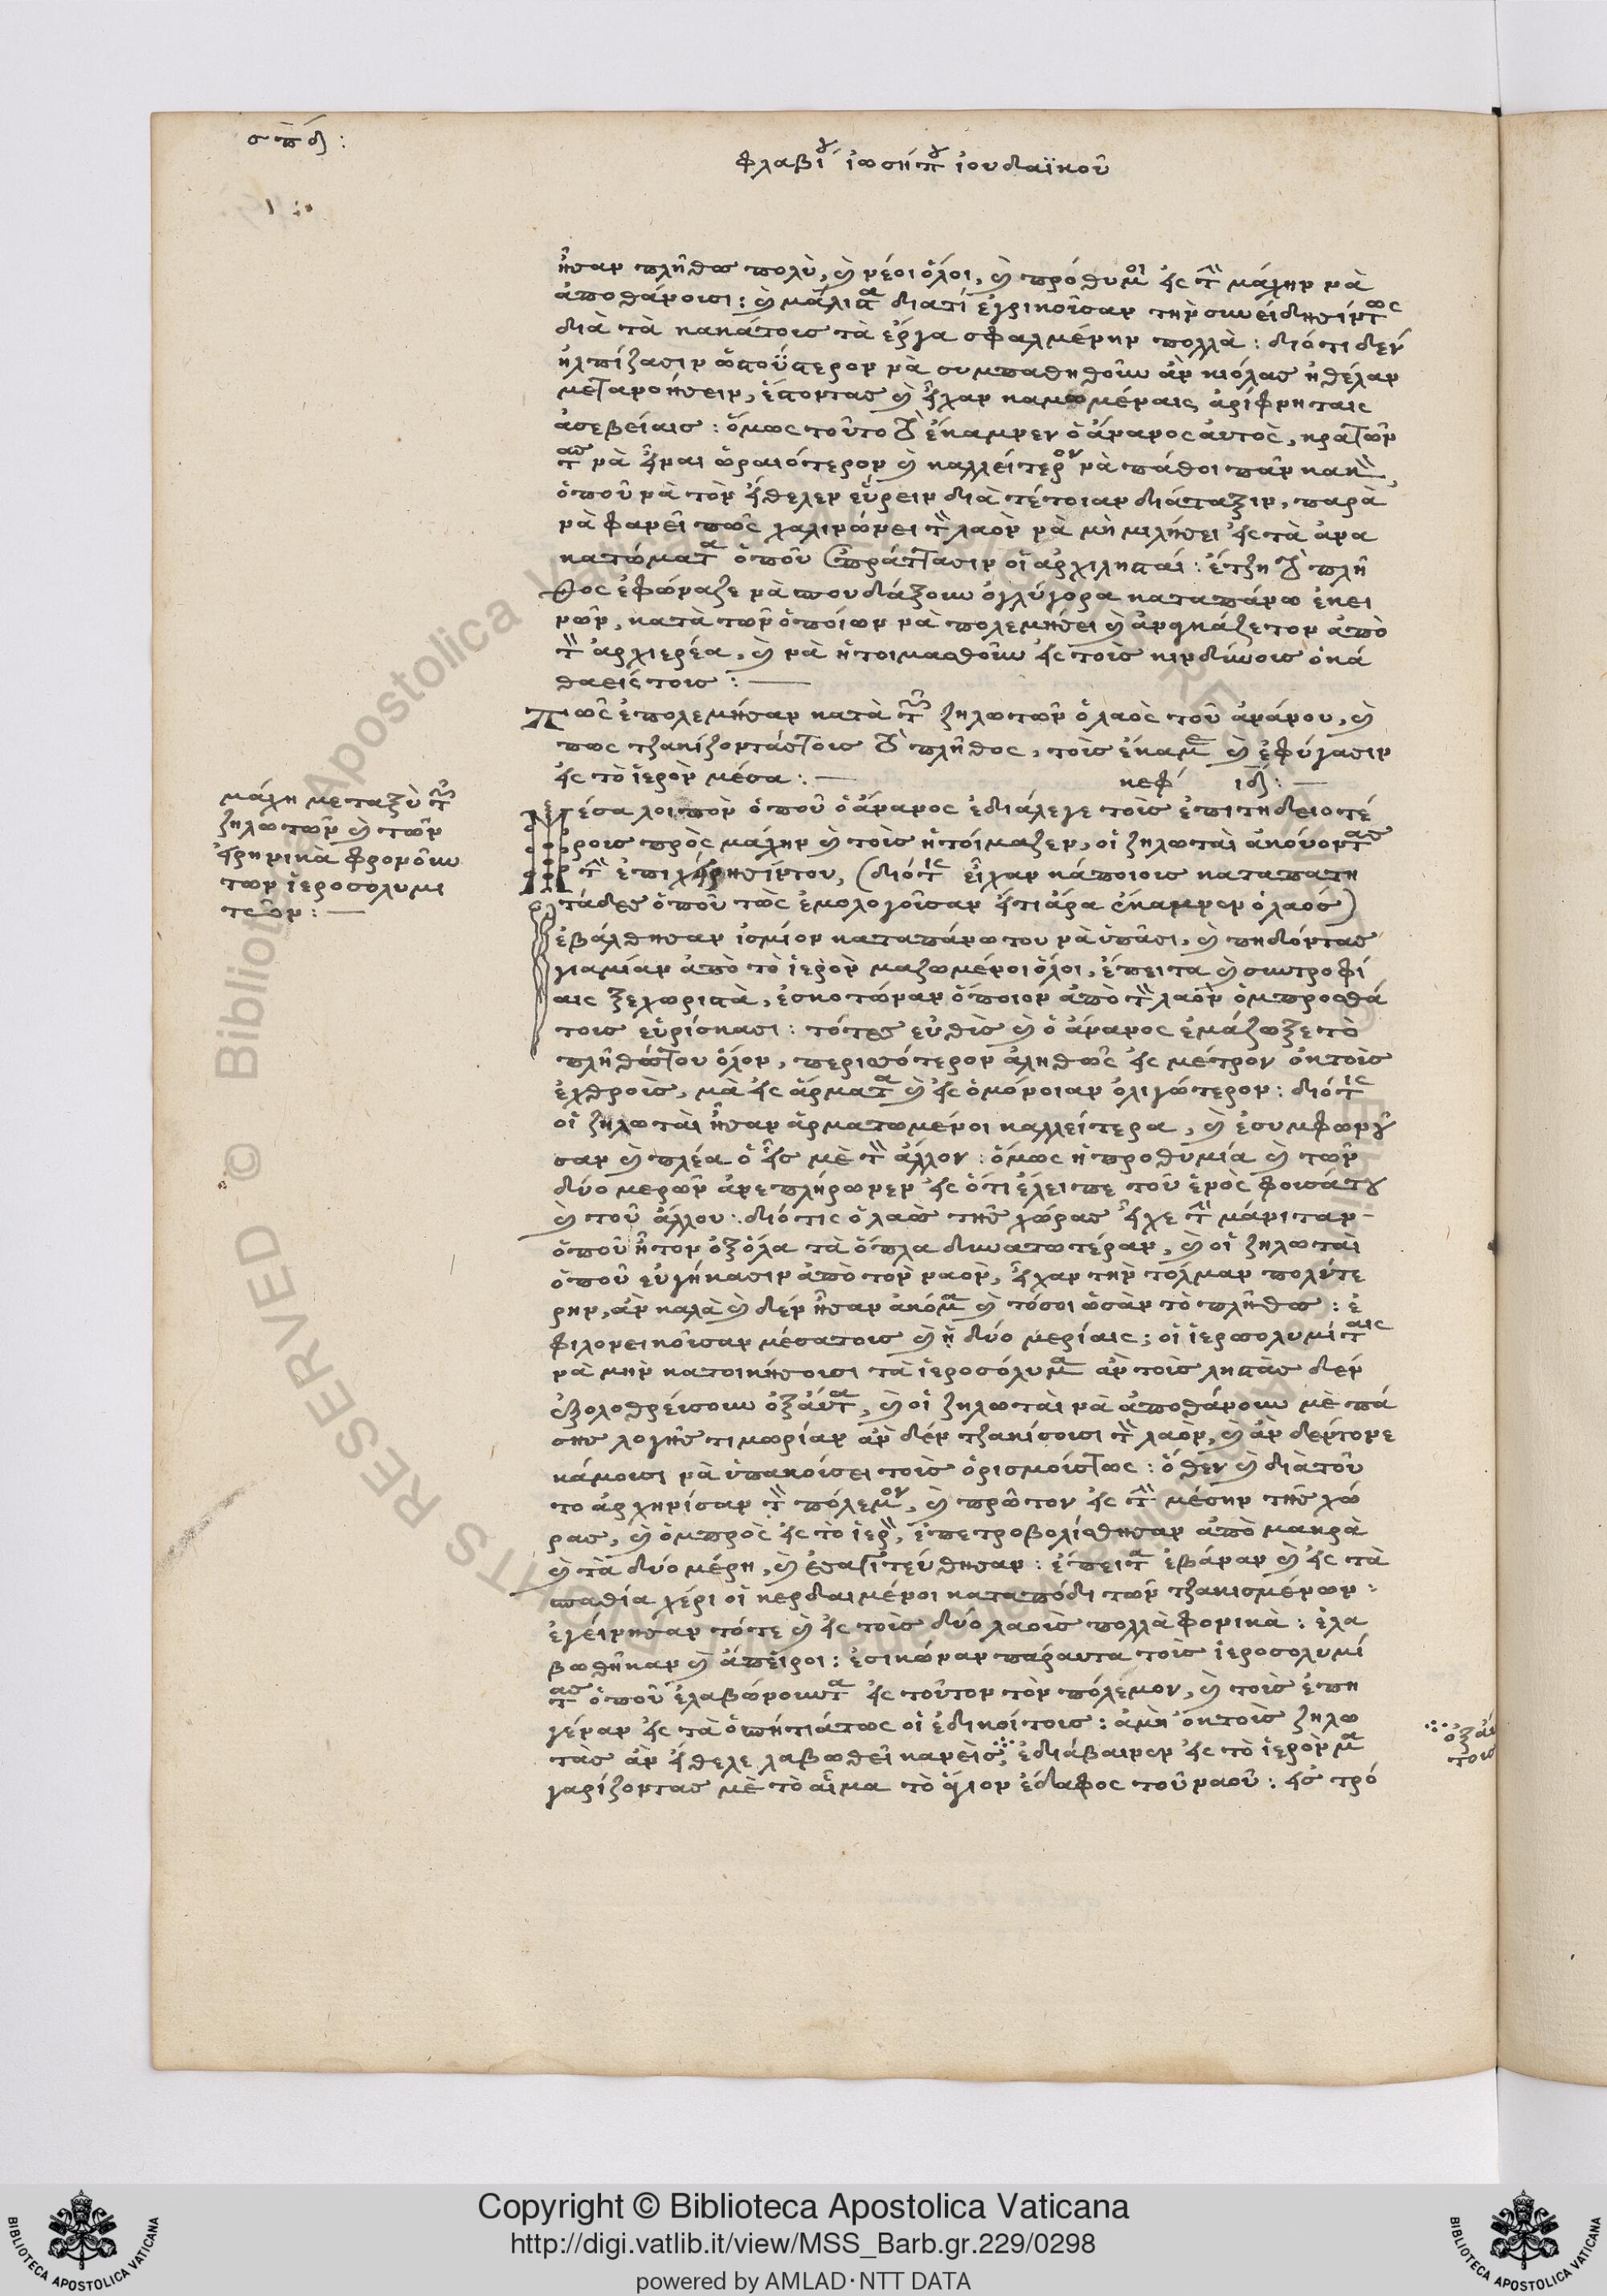 σπδ:
φλαβίου ἰωσήπου ἰουδαϊκοῦ
ἦσαν πλῆθος πολὺ, καὶ νέοι ὅλοι, καὶ πρόθυμοι εἰς τὴν μάχην νὰ
ἀποθάνουσι: καὶ μάλιστα διατί ἐγρικοῦσαν τὴν συνείδησίν τως
διὰ τὰ κακάτους τὰ ἔργα σφαλμένην πολλὰ: διότι δὲν
ἠλπίζασιν ὡστοὕστερον νὰ συμπαθηθοῦν ἂν κιόλας ἠθέλαν
μετανοήσειν, ἔστοντας καὶ εἶχαν καμωμέναις ἀρίφνηταις
ἀσεβείαις: ὅμως τοῦτο τὸ ἔκαμνεν ὁ ἄνανος αὐτὸς, κρατῶν
τας νὰ εἶναι ὡραιότερον καὶ καλλείτερον νὰ πάθοι πᾶν κακὸν,
ὁποῦ νὰ τὸν ἤθελεν εὕρειν διὰ τέτοιαν διάταξιν, παρὰ
νὰ φανεῖ πῶς χαλινώνει τὸν λαὸν νὰ μὴ μιλήσει εἰς τὰ ἀνα
κατώματα ὁποῦ ἐπράττασιν οἱ ἀρχιλησταί: ἔτζη τὸ πλῆ
θος ἐφώναζε νὰ σπουδάξουν ὀγλύγορα καταπάνω ἐκει
νῶν, κατὰ τῶν ὁποίων νὰ πολεμήσει καὶ ἀνγκάζετον ἀπὸ
τὸν ἀρχιερέα, καὶ νὰ ἡτοιμασθοῦν εἰς τοὺς κινδύνους ὁ κά
θαεὶς τους: —
Πῶς ἐπολεμήσαν κατὰ τῶν ζηλωτῶν ὁ λαὸς τοῦ ἀνάνου, καὶ
πως τζακίζοντάς τους τὸ πλῆθος, τοὺς ἔκαμε καὶ ἐφύγασιν
εἰς τὸ ἱερὸν μέσα: — κεφ ιδ: —
μάχη μεταξὺ τῶν
ζηλωτῶν καὶ τῶν
εἰρηνικὰ φρονοῦν
των ἱεροσολυμι
τῶν: —
Μέσα λοιπὸν ὁποῦ ὁ ἄνανος ἐδιάλεγε τοὺς ἐπιτηδειοτέ
ρους πρὸς μάχην καὶ τοὺς ἡτοίμαζεν, οἱ ζηλωταὶ ἀκούοντας
τὴν ἐπιχείρησίν του, (διότις εἶχαν κάποιους καταπατη
τάδες ὁποῦ τῶς ἐμολογοῦσαν εἴτι ἄρα ἔκαμνεν ὁ λαός)
ἐβάλθησαν ἰσμίον καταπάνω του νὰ ὑπᾶσι, καὶ πηδόντας
γιαμίαν ἀπὸ τὸ ἱερὸν μαζωμένοι ὅλοι, ἔπειτα καὶ συντροφί
αις ξεχωριστὰ, ἐσκοτώναν ὅποιον ἀπὸ τὸν λαὸν ὀμπροσθά
τους εὑρίσκασι: τότες εὐθὺς καὶ ὁ ἄνανος ἐμάζωξε τὸ
πλῆθός του ὅλον, περισσότερον ἀληθῶς εἰς μέτρον ὀκ τοὺς
ἐχθροὺς, μὰ εἰς ἄρματα καὶ εἰς ὁμόνοιαν ὀλιγώτερον: διότις
οἱ ζηλωταὶ ἦσαν ἀρματωμένοι καλλείτερα, καὶ ἐσυμφωνοῦ
σαν καὶ πλέα ὁ εἷς μὲ τὸν ἄλλον: ὅμως ἡ προθυμία καὶ τῶν
δύο μερῶν ἀνεπλήρωνεν εἰς ὅτι ἔλειπε τοῦ ἑνὸς φουσάτου
καὶ τοῦ ἄλλου: διότις ὁ λαὸς τῆς χώρας εἶχε τὴν μάνιταν
ὁποῦ ἦτον ὀξ ὅλα τὰ ὅπλα δυνατωτέραν, καὶ οἱ ζηλωταὶ
ὁποῦ εὐγήκασιν ἀπὸ τὸν ναὸν, εἶχαν τὴν τόλμαν πολύτε
ρην, ἂν καλὰ καὶ δὲν ἦσαν ἀκόμα καὶ τόσοι ὡσὰν τὸ πλῆθος: ἐ
φιλονεικοῦσαν μέσατους καὶ ᾑ δύο μερίαις; οἱ ἱεροσολυμίταις
νὰ μὴν κατοικήσουσι τὰ ἱεροσόλυμα ἂν τοὺς ληστὰς δὲν
ἐξολοθρεύσουν ὀξαὐτα, καὶ οἱ ζηλωταὶ νὰ ἀποθάνουν μὲ πά
σης λογῆς τιμωρίαν ἂν δὲν τζακίσουσι τὸν λαὸν, καὶ ἂν δὲν τονε
κάμουσι νὰ ὑπακούσει τοὺς ὁρισμούς τως: ὅθεν καὶ διὰ τοῦ
το ἀρχηνίσαν τὸν πόλεμον, καὶ πρῶτον εἰς τὴν μέσην τῆς χώ
ρας, καὶ ὀμπρὸς εἰς τὸ ἱερὸν, ἐπετροβολίσθησαν ἀπὸ μακρὰ
καὶ τὰ δύο μέρη, καὶ ἐσαϊτεύθησαν: ἔπειτα ἐβάναν καὶ εἰς τὰ
σπαθία χέρι οἱ κερδαιμένοι καταπόδι τῶν τζακισμένων:
ἐγείνησαν τότε καὶ εἰς τοὺς δύο λαοὺς πολλὰ φονικὰ: ἐλα
βωθῆκαν καὶ ἄπειροι: ἐσικώναν πάραυτα τοὺς ἱεροσολυμί
τας ὁποῦ ἐλαβώνουντα εἰς τοῦτον τὸν πόλεμον, καὶ τοὺς ἐπη
γέναν εἰς τὰ ὁσπήτιάτως οἱ ἐδικοίτους: ἀμὴ ὀκ τοὺς ζηλω
τὰς ἂν ἤθελε λαβωθεῖ κανεὶς, ἐδιάβαινεν εἰς τὸ ἱερὸν μα
γαρίζοντας μὲ τὸ αἷμα τὸ ἅγιον ἔδαφος τοῦ ναοῦ: εἰς τρό
Copyright © Biblioteca Apostolica Vaticana
http://digi.vatlib.it/view/MSS_Barb.gr.229/0298
powered by AMLAD·NTT DATA
BIBLIOTECA APOSTOLICA VATICANA
BIBLIOTECA APOSTOLICA VATICANA